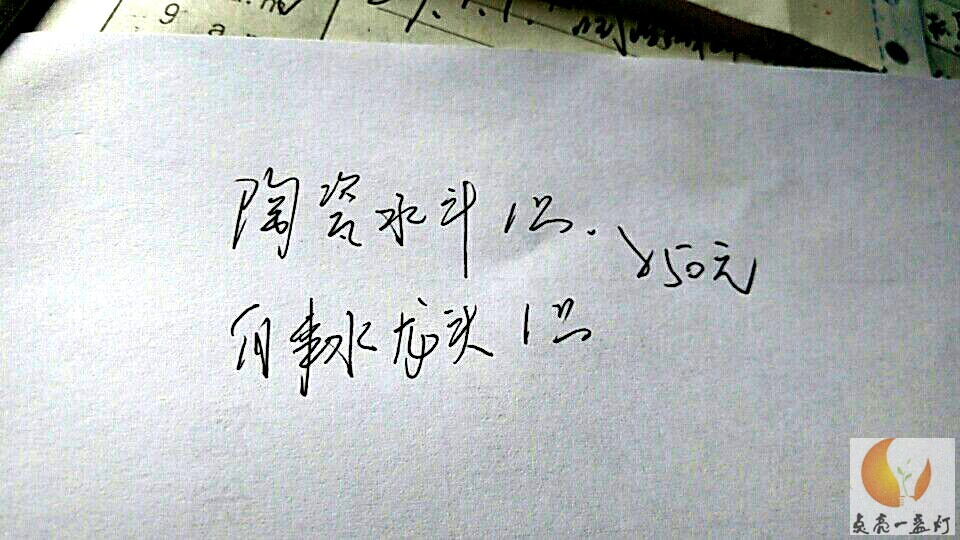 g
a
陶瓷水斗1只.
850元
自来水龙头1只
点亮一盏灯